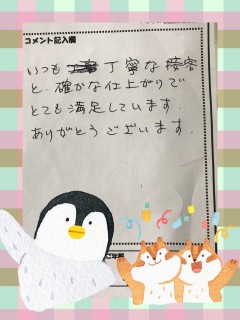 コメント記入欄
いつも 丁寧な接客
と、確かな仕上がりで
とても満足しています。
ありがとうございます。